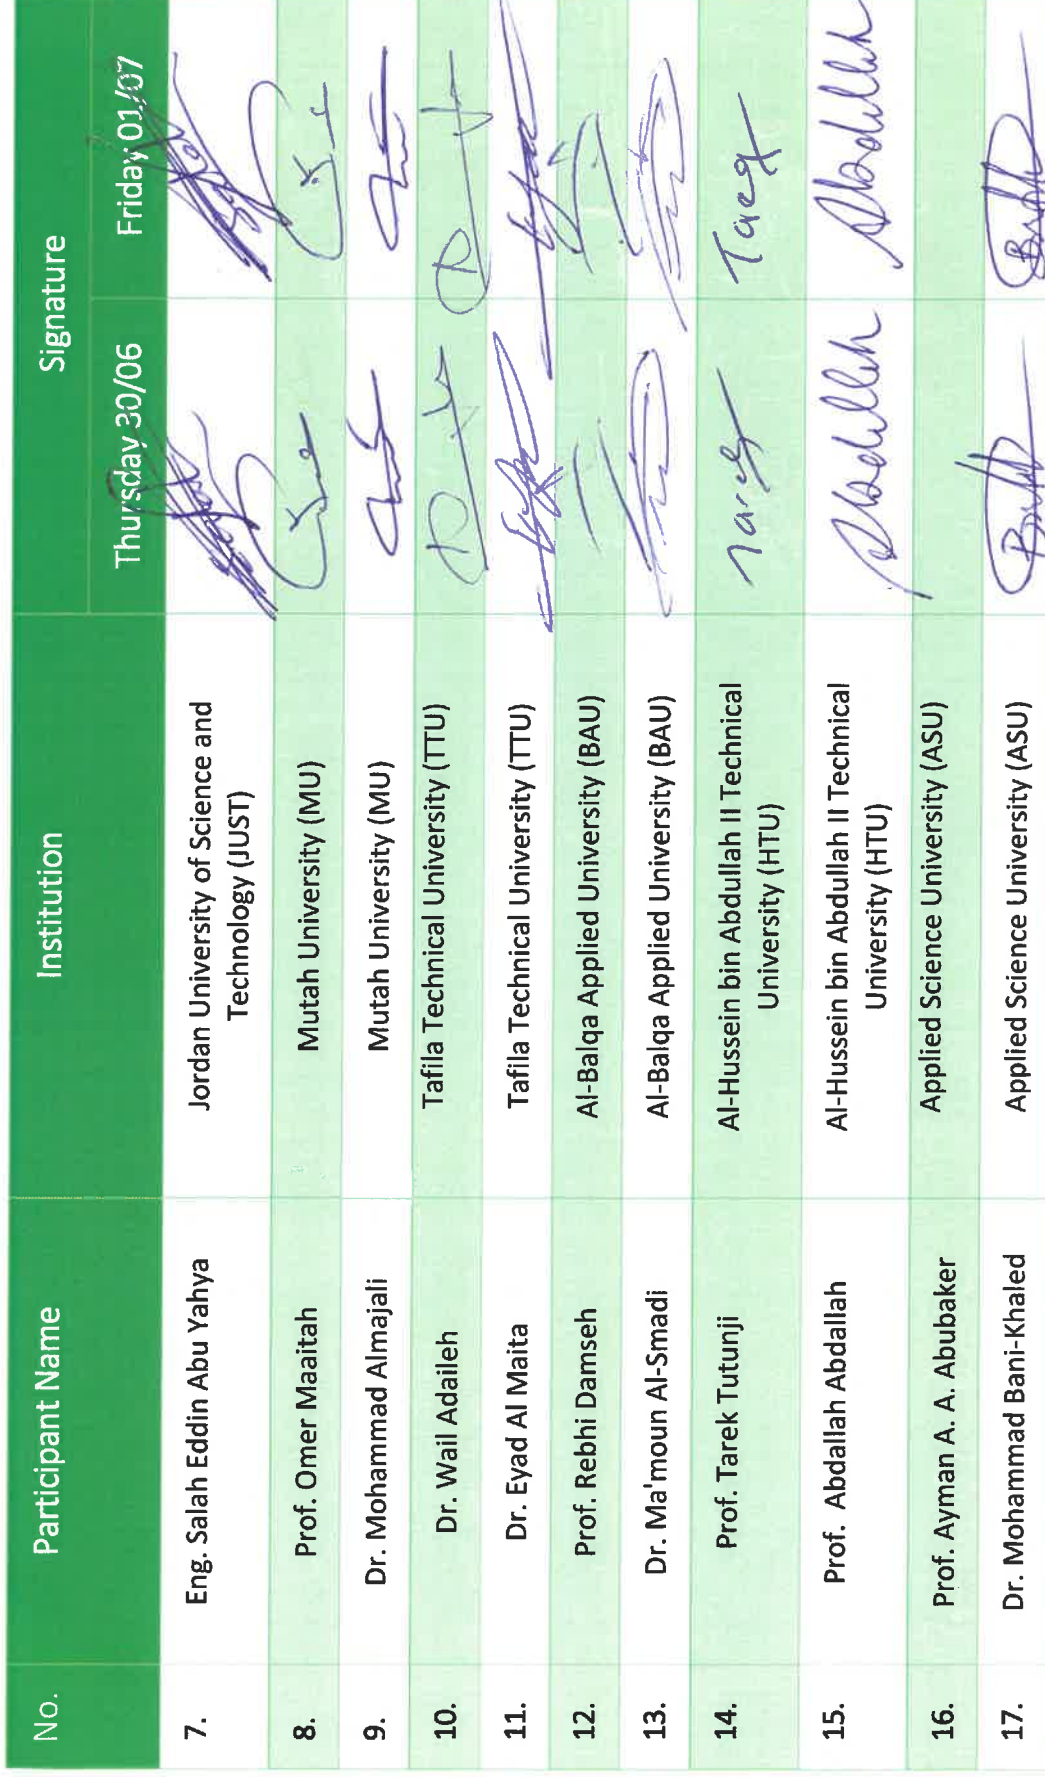 No. Participant Name Institution Signature
Thursday 30/06 Friday 01/07
7. Eng. Salah Eddin Abu Yahya Jordan University of Science and
Technology (JUST)
8. Prof. Omer Maaitah Mutah University (MU)
9. Dr. Mohammad Almajali Mutah University (MU)
10. Dr. Wail Adaileh Tafila Technical University (TTU)
11. Dr. Eyad Al Maita Tafila Technical University (TTU)
12. Prof. Rebhi Damseh Al-Balqa Applied University (BAU)
13. Dr. Ma'moun Al-Smadi Al-Balqa Applied University (BAU)
14. Prof. Tarek Tutunji Al-Hussein bin Abdullah II Technical
University (HTU) Tareq Tareq
15. Prof. Abdallah Abdallah Al-Hussein bin Abdullah II Technical
University (HTU) Abdallah Abdallah
16. Prof. Ayman A. A. Abubaker Applied Science University (ASU)
17. Dr. Mohammad Bani-Khaled Applied Science University (ASU)